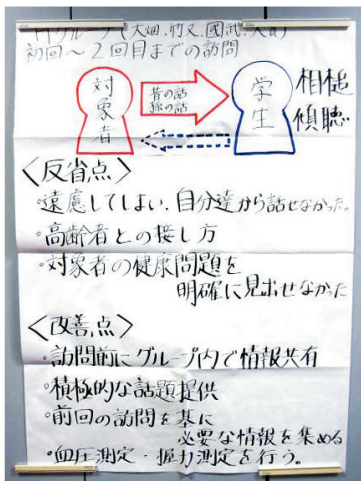 グループ(大畑、竹又、國武、
初回~2回目までの訪問
対象者
昔の話
孫の話
学生
相槌
傾聴
<反省点>
・遠慮してしまい、自分達から話せなかった。
・高齢者との接し方
・対象者の健康問題を
明確に見出せなかった
<改善点>
・訪問前にグループ内で情報共有
・積極的な話題提供
・前回の訪問を基に
必要な情報を集める
・血圧測定・握力測定を行う。